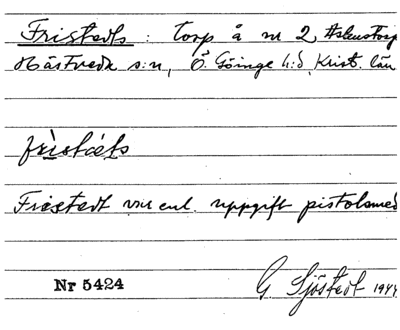 Fristedts: torp å nr 2, Askustorp
Hästveda s:n, Ö. Göinge h:d, Krist. län
frìstǽts
Fristedt var enl. uppgift pistolsmed
Nr 5424 G. Sjöstedt 1944